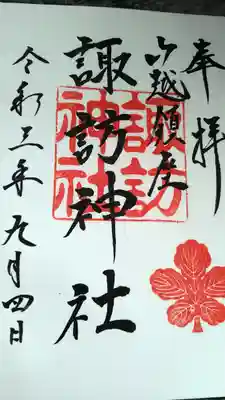 奉拝
山越願度
諏訪神社
諏訪
神社
令和三年九月四日